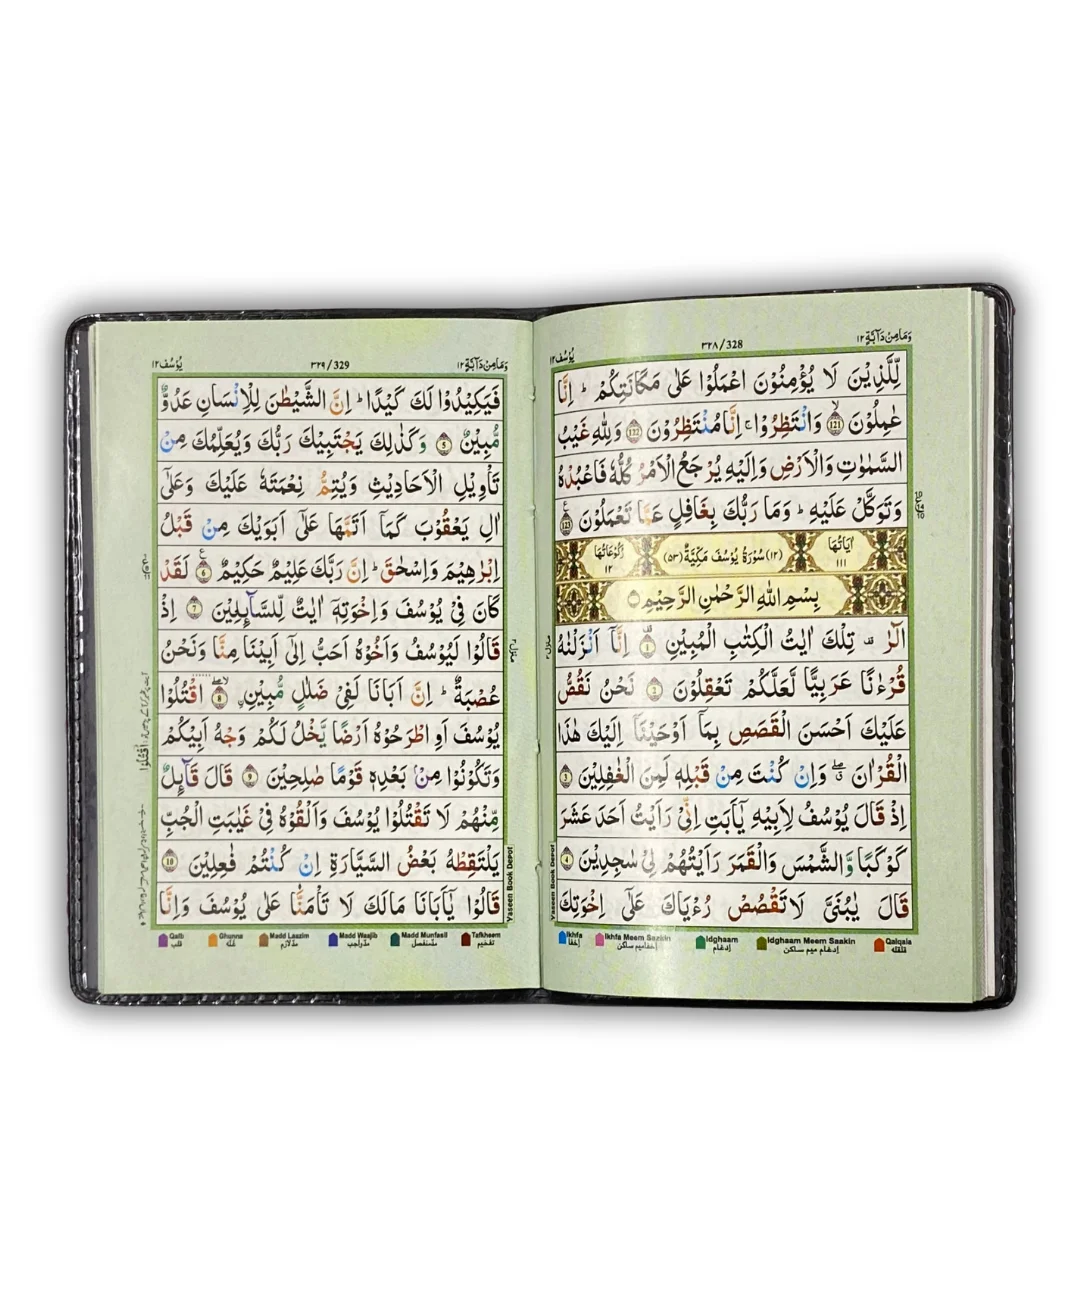 وَمَا مِنْ دَآبَّةٍ ١٢
٣٢٨ / 328
يُوْسُف ١٢
لِّلَّذِيْنَ لَا يُؤْمِنُوْنَ اعْمَلُوْا عَلٰى مَكَانَتِكُمْ ؕ اِنَّا
عٰمِلُوْنَ 121 وَانْتَظِرُوْا ۚ اِنَّا مُنْتَظِرُوْنَ 122 وَلِلّٰهِ غَيْبُ
السَّمٰوٰتِ وَالْاَرْضِ وَاِلَيْهِ يُرْجَعُ الْاَمْرُ كُلُّهٗ فَاعْبُدْهُ
وَتَوَكَّلْ عَلَيْهِ ؕ وَمَا رَبُّكَ بِغَافِلٍ عَمَّا تَعْمَلُوْنَ 123
اٰيَاتُهَا ١١١ (١٢) سُوْرَةُ يُوْسُفَ مَكِّيَّةٌ (٥٣) رُكُوْعَاتُهَا ١٢
بِسْمِ اللهِ الرَّحْمٰنِ الرَّحِيْمِ
الٓرٰ ۟ تِلْكَ اٰيٰتُ الْكِتٰبِ الْمُبِيْنِ 1 اِنَّاۤ اَنْزَلْنٰهُ
قُرْءٰنًا عَرَبِيًّا لَّعَلَّكُمْ تَعْقِلُوْنَ 2 نَحْنُ نَقُصُّ
عَلَيْكَ اَحْسَنَ الْقَصَصِ بِمَاۤ اَوْحَيْنَاۤ اِلَيْكَ هٰذَا
الْقُرْاٰنَ ۖ وَاِنْ كُنْتَ مِنْ قَبْلِهٖ لَمِنَ الْغٰفِلِيْنَ 3
اِذْ قَالَ يُوْسُفُ لِاَبِيْهِ يٰۤاَبَتِ اِنِّيْ رَاَيْتُ اَحَدَ عَشَرَ
كَوْكَبًا وَّالشَّمْسَ وَالْقَمَرَ رَاَيْتُهُمْ لِيْ سٰجِدِيْنَ 4
قَالَ يٰبُنَيَّ لَا تَقْصُصْ رُءْيَاكَ عَلٰۤى اِخْوَتِكَ
Ikhfa Ikhfa Meem Saakin Idghaam Idghaam Meem Saakin Qalqala
إخفا إخفا میم ساکن إدغام إدغام میم ساکن قلقله
Yaseen Book Depot
وَمَا مِنْ دَآبَّةٍ ١٢
٣٢٩ / 329
يُوْسُف ١٢
فَيَكِيْدُوْا لَكَ كَيْدًا ؕ اِنَّ الشَّيْطٰنَ لِلْاِنْسَانِ عَدُوٌّ
مُّبِيْنٌ 5 وَكَذٰلِكَ يَجْتَبِيْكَ رَبُّكَ وَيُعَلِّمُكَ مِنْ
تَاْوِيْلِ الْاَحَادِيْثِ وَيُتِمُّ نِعْمَتَهٗ عَلَيْكَ وَعَلٰۤى
اٰلِ يَعْقُوْبَ كَمَاۤ اَتَمَّهَا عَلٰۤى اَبَوَيْكَ مِنْ قَبْلُ
اِبْرٰهِيْمَ وَاِسْحٰقَ ؕ اِنَّ رَبَّكَ عَلِيْمٌ حَكِيْمٌ 6 لَقَدْ
كَانَ فِيْ يُوْسُفَ وَاِخْوَتِهٖۤ اٰيٰتٌ لِّلسَّآىِٕلِيْنَ 7 اِذْ
قَالُوْا لَيُوْسُفُ وَاَخُوْهُ اَحَبُّ اِلٰۤى اَبِيْنَا مِنَّا وَنَحْنُ
عُصْبَةٌ ؕ اِنَّ اَبَانَا لَفِيْ ضَلٰلٍ مُّبِيْنِ 8 اقْتُلُوْا
يُوْسُفَ اَوِ اطْرَحُوْهُ اَرْضًا يَّخْلُ لَكُمْ وَجْهُ اَبِيْكُمْ
وَتَكُوْنُوْا مِنْۢ بَعْدِهٖ قَوْمًا صٰلِحِيْنَ 9 قَالَ قَآىِٕلٌ
مِّنْهُمْ لَا تَقْتُلُوْا يُوْسُفَ وَاَلْقُوْهُ فِيْ غَيٰبَتِ الْجُبِّ
يَلْتَقِطْهُ بَعْضُ السَّيَّارَةِ اِنْ كُنْتُمْ فٰعِلِيْنَ 10
قَالُوْا يٰۤاَبَانَا مَالَكَ لَا تَاْمَنَّا عَلٰى يُوْسُفَ وَاِنَّا
Qalb Ghunna Madd Laazim Madd Waajib Madd Munfasil Tafkheem
قلب غنّه مدّلازم مدّواجب مدّمنفصل تفخیم
Yaseen Book Depot